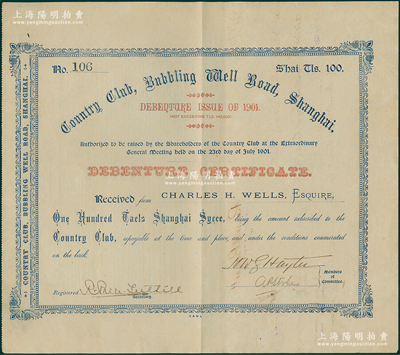 上海陽明拍賣
www.yangmingauction.com
No. 106
Shai Tls. 100.
Country Club, Bubbling Well Road, Shanghai.
DEBENTURE ISSUE OF 1901.
Authorized to be raised by the Shareholders of the Country Club at the Extraordinary
General Meeting held on the 23rd day of July 1901.
DEBENTURE CERTIFICATE.
Received from CHARLES H. WELLS, ESQUIRE,
One Hundred Taels Shanghai Sycee, being the amount advanced to the
Country Club, repayable at the time and place, and under the conditions enumerated
on the back.
Members
of
Committee.
Registered
Secretary.
COUNTRY CLUB, BUBBLING WELL ROAD, SHANGHAI.